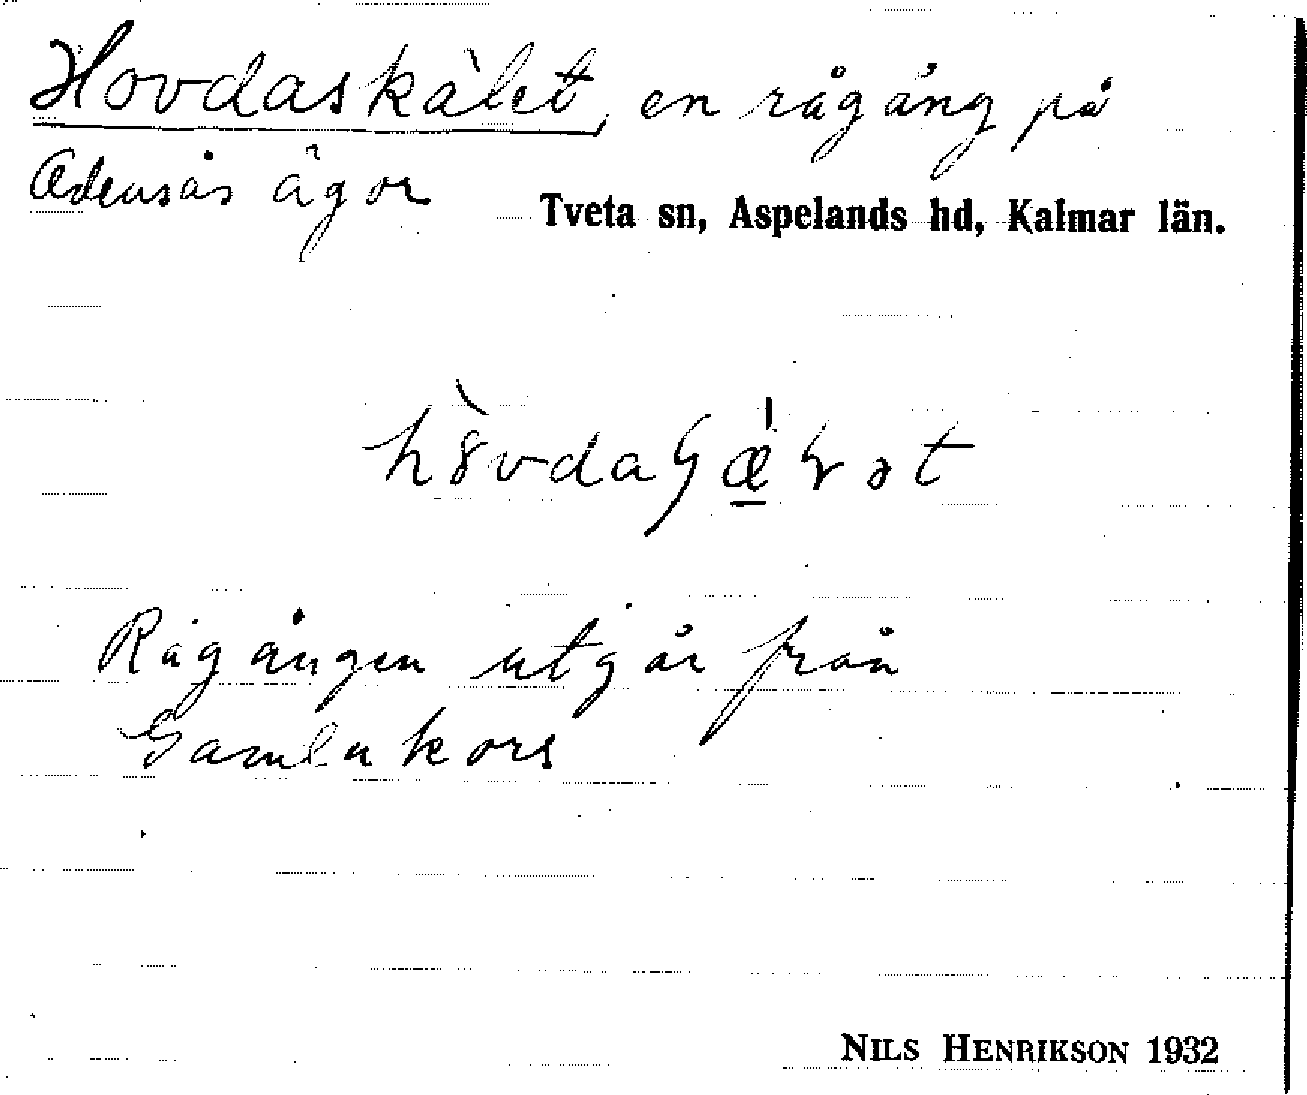 Hovdaskälet, en rågång på
Ådensås ägor
Tveta sn, Aspelands hd, Kalmar län.
Rågången utgår från
Gamla kors
NILS HENRIKSON 1932